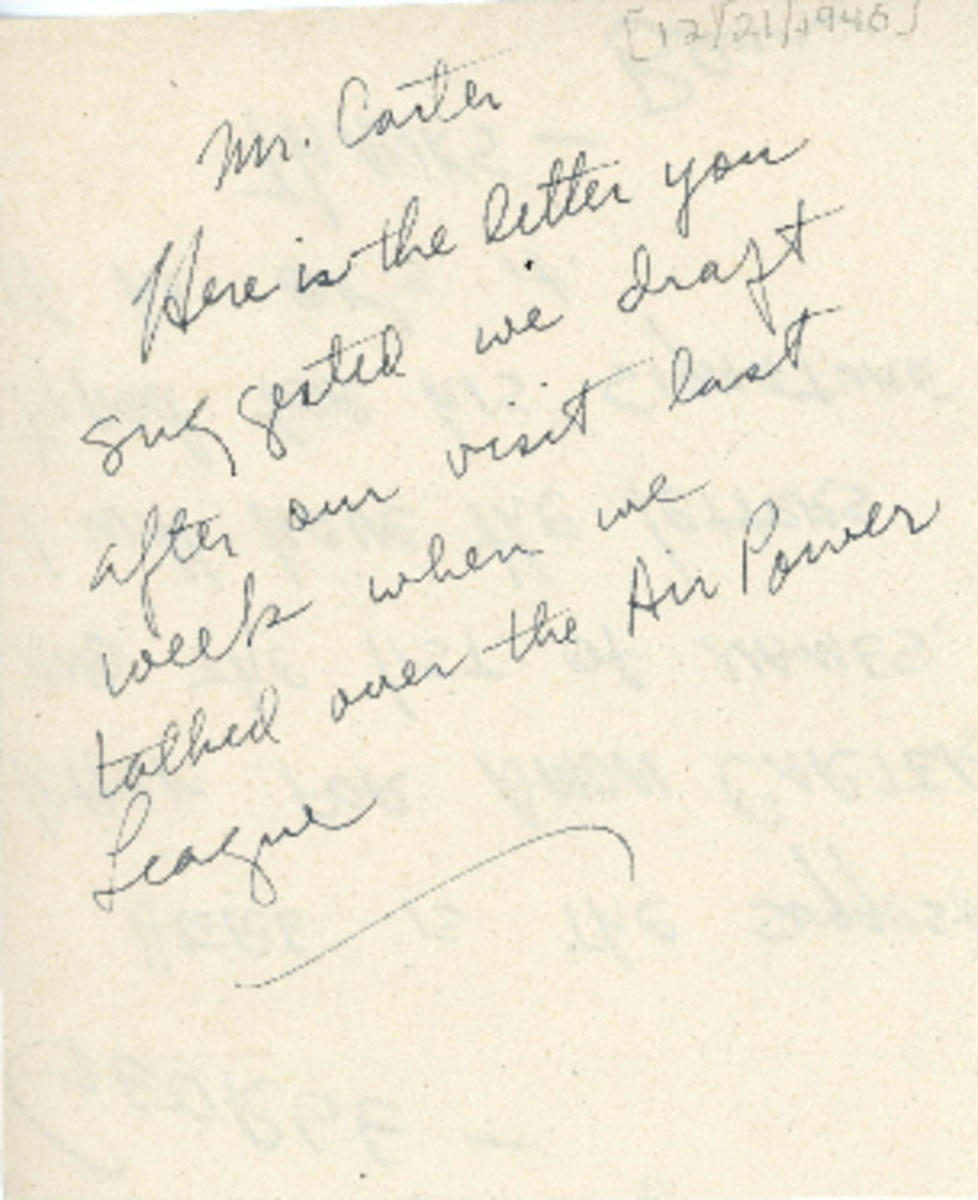 [12/21/1945]
Mr. Carter
Here is the letter you
suggested we draft
after our visit last
week when we
talked over the Air Power
League